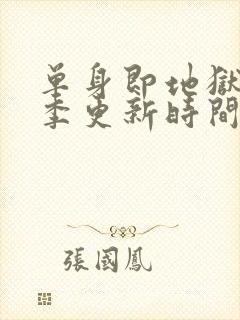 單身即地獄
季更新時間
張國鳳